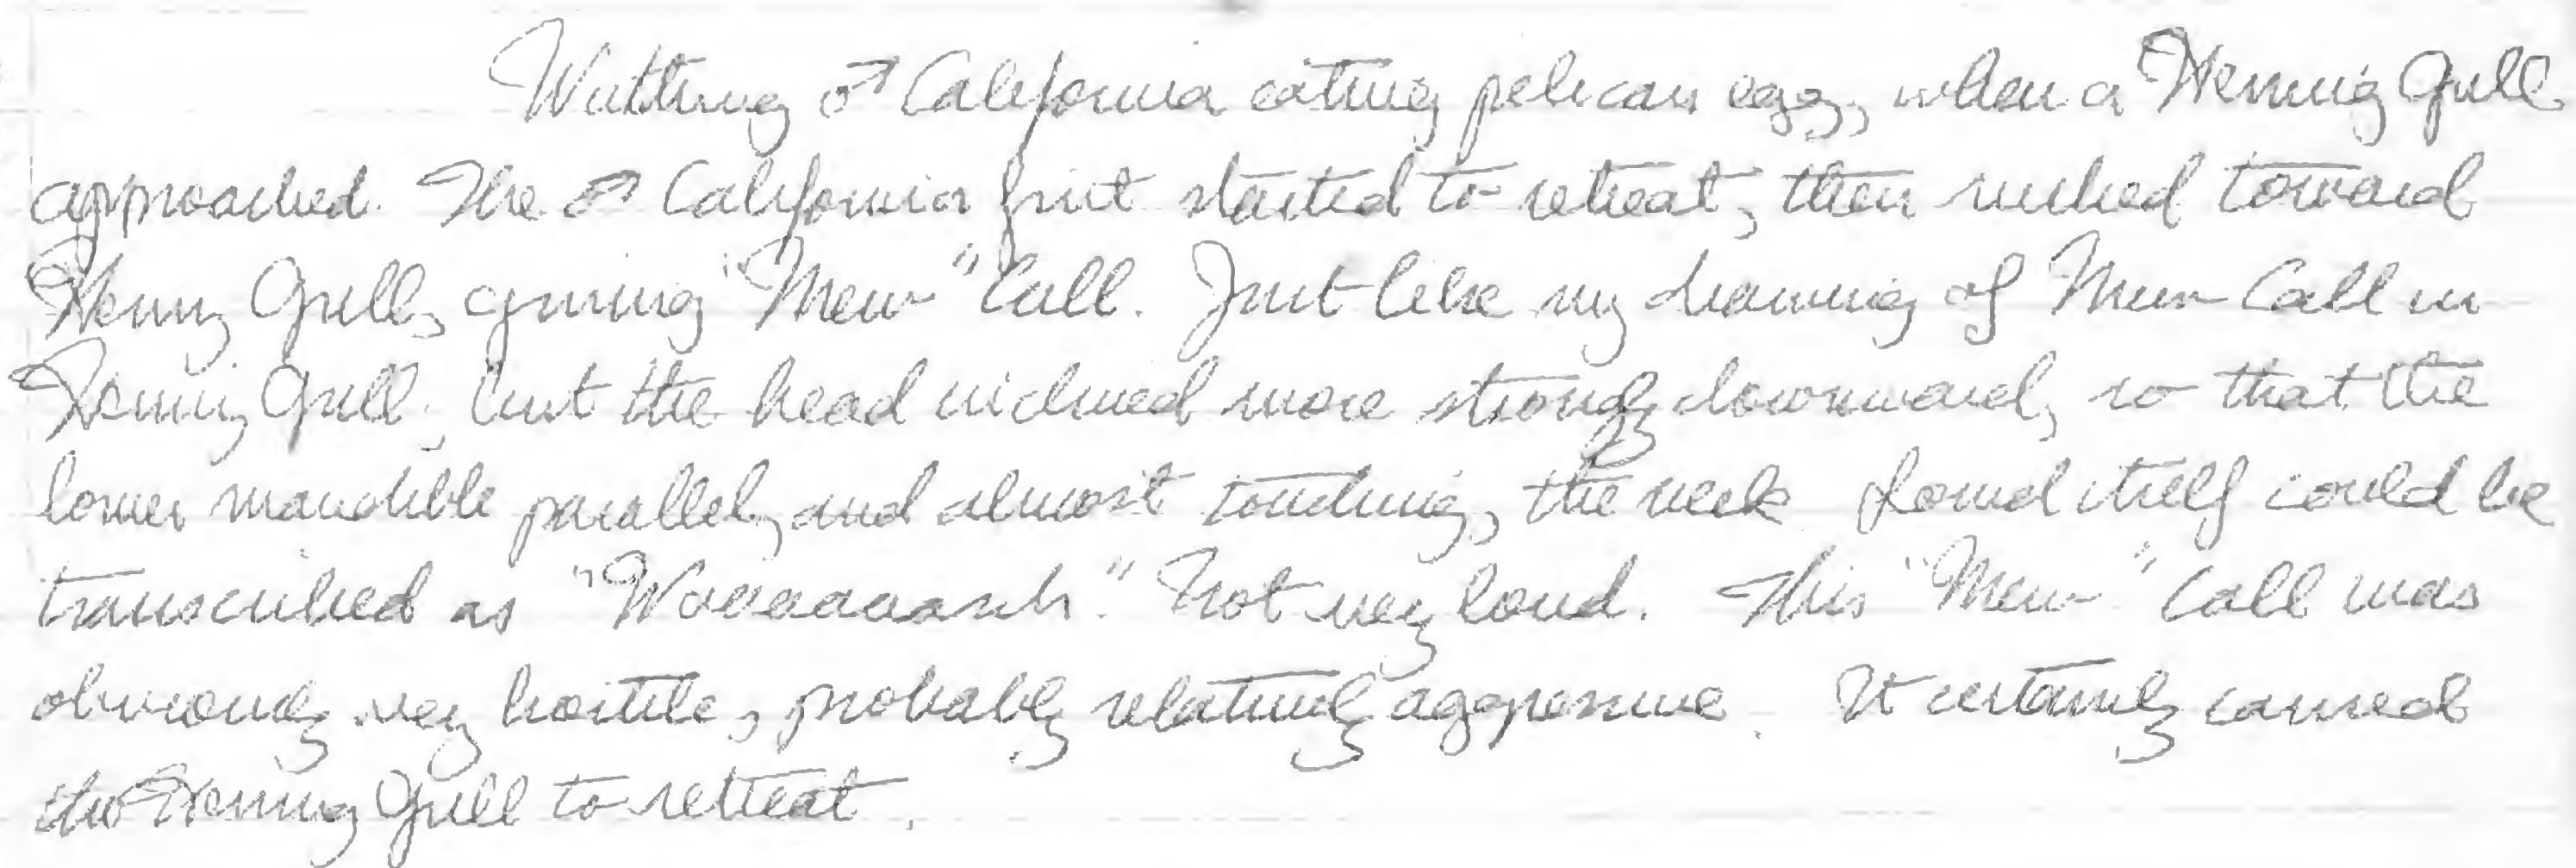 Watching ♂ California eating pelican egg, when a Herring Gull
approached. The ♂ California first started to retreat, then rushed toward
Herring Gull, giving "Mew" Call. Just like my drawing of Mew Call in
Herring Gull, but the head inclined more strongly downward, so that the
lower mandible parallel, and almost touching, the neck. Sound itself could be
transcribed as "Not very loud. This "Mew" Call was
obviously very hostile, probably relatively aggressive. It certainly caused
the Herring Gull to retreat.